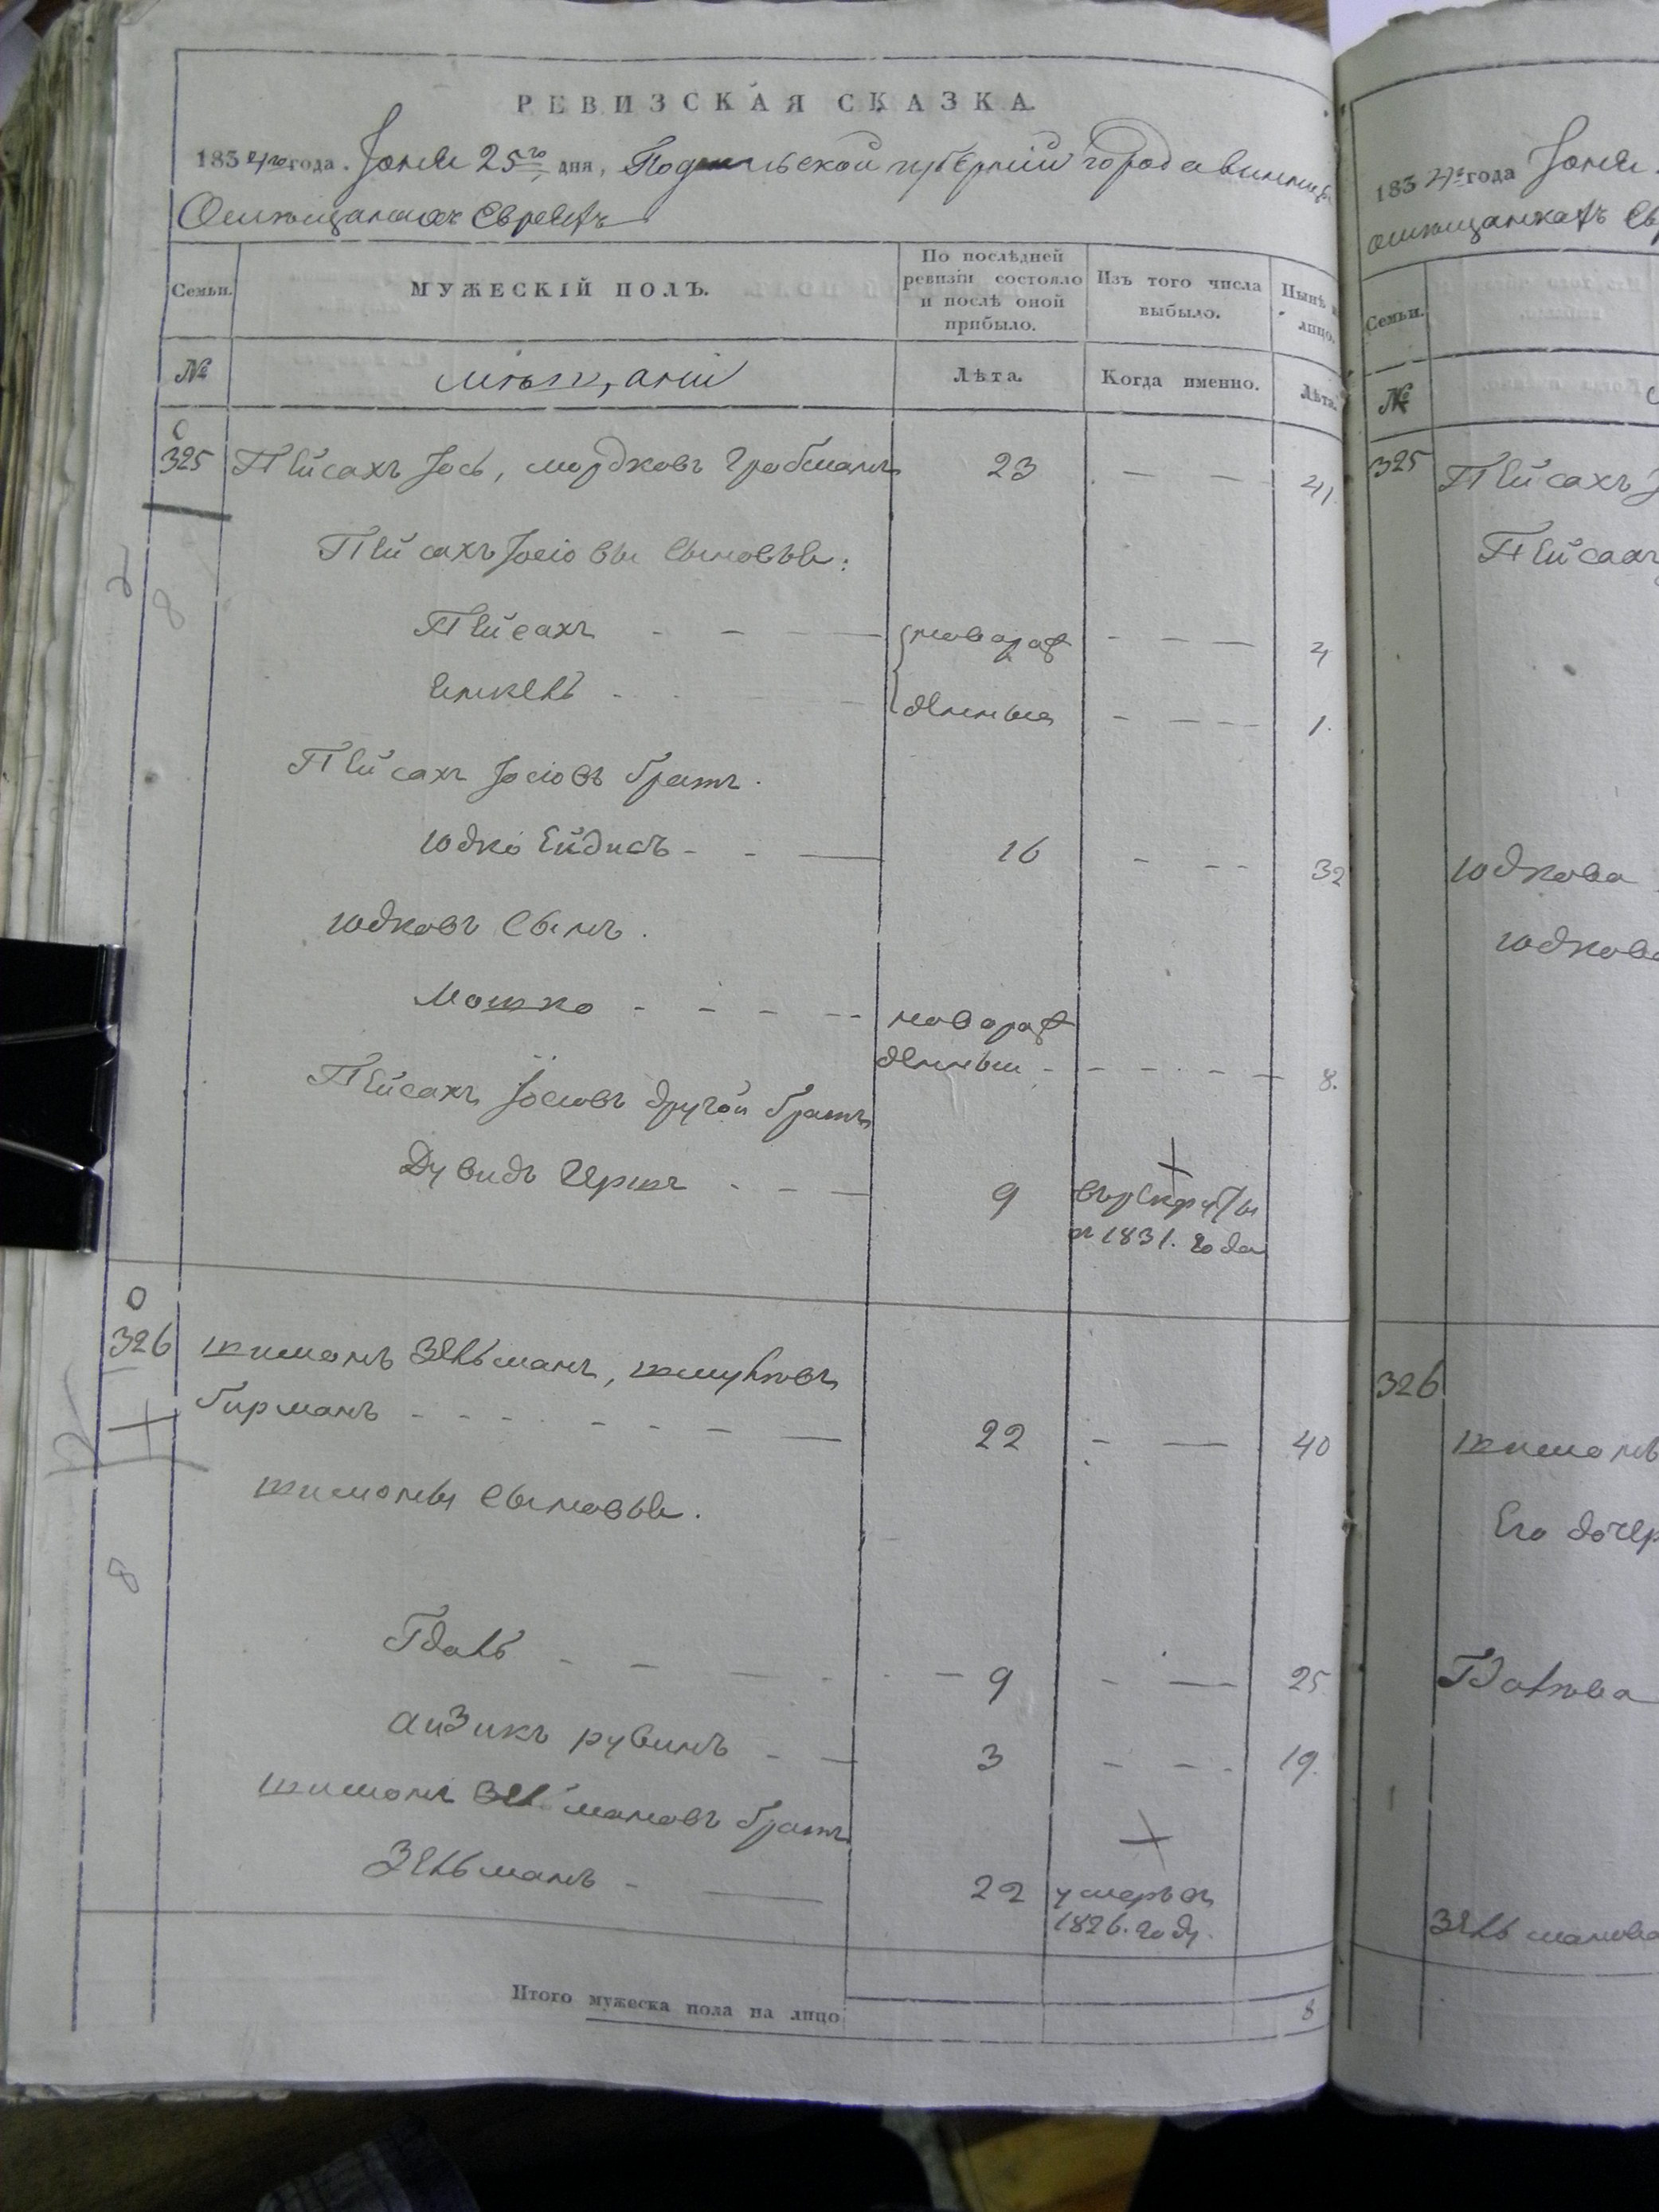 РЕВИЗСКАЯ СКАЗКА.
1834го года. Іюня 25го дня, Подольской губерніи города винницы
Омѣщанахъ Евреяхъ
Семьи. МУЖЕСКІЙ ПОЛЪ. По послѣдней ревизіи состояло и послѣ оной прибыло. Изъ того числа выбыло. Нынѣ на лицо.
№ мѣщаніи Лѣта. Когда именно. Лѣта.
325 Пейсахъ Іось, мордковъ Гробманъ 23 — — 41
Пейсахъ Іосіовы Сыновья:
Пейсахъ - - - — новорож - - — 4
Янкель - - - денные - - — — 1.
Пейсахъ Іосіовъ братъ.
Юдко Ейдисъ - - — 16 - - - 32
Юдковъ Сынъ.
Мошко - - - - - новорож
денный - - - - - — 8.
Пейсахъ Іосіовъ другой братъ
Дувидъ Гершъ - - — 9 въ рекруты
въ 1831. года
326 шимонъ Зельманъ, шмулковъ
бирманъ - - - - - - - — 22 - — 40
шимоны Сыновья.
Гдаль - - — - - — 9 - — 25
аизикъ рувинъ - — 3 - - . 19.
шимонъ Зельмановъ братъ
Зельманъ - — 22 умеръ въ
1826. году.
Итого мужеска пола на лицо 8
1834го года Іюня
омѣщанкахъ Ев
Семьи.
№
325 Пейсахъ
Пейсахъ
Юдкова
Юдкова
326
шимонъ
Его дочер
Гдалкова
Зельманова